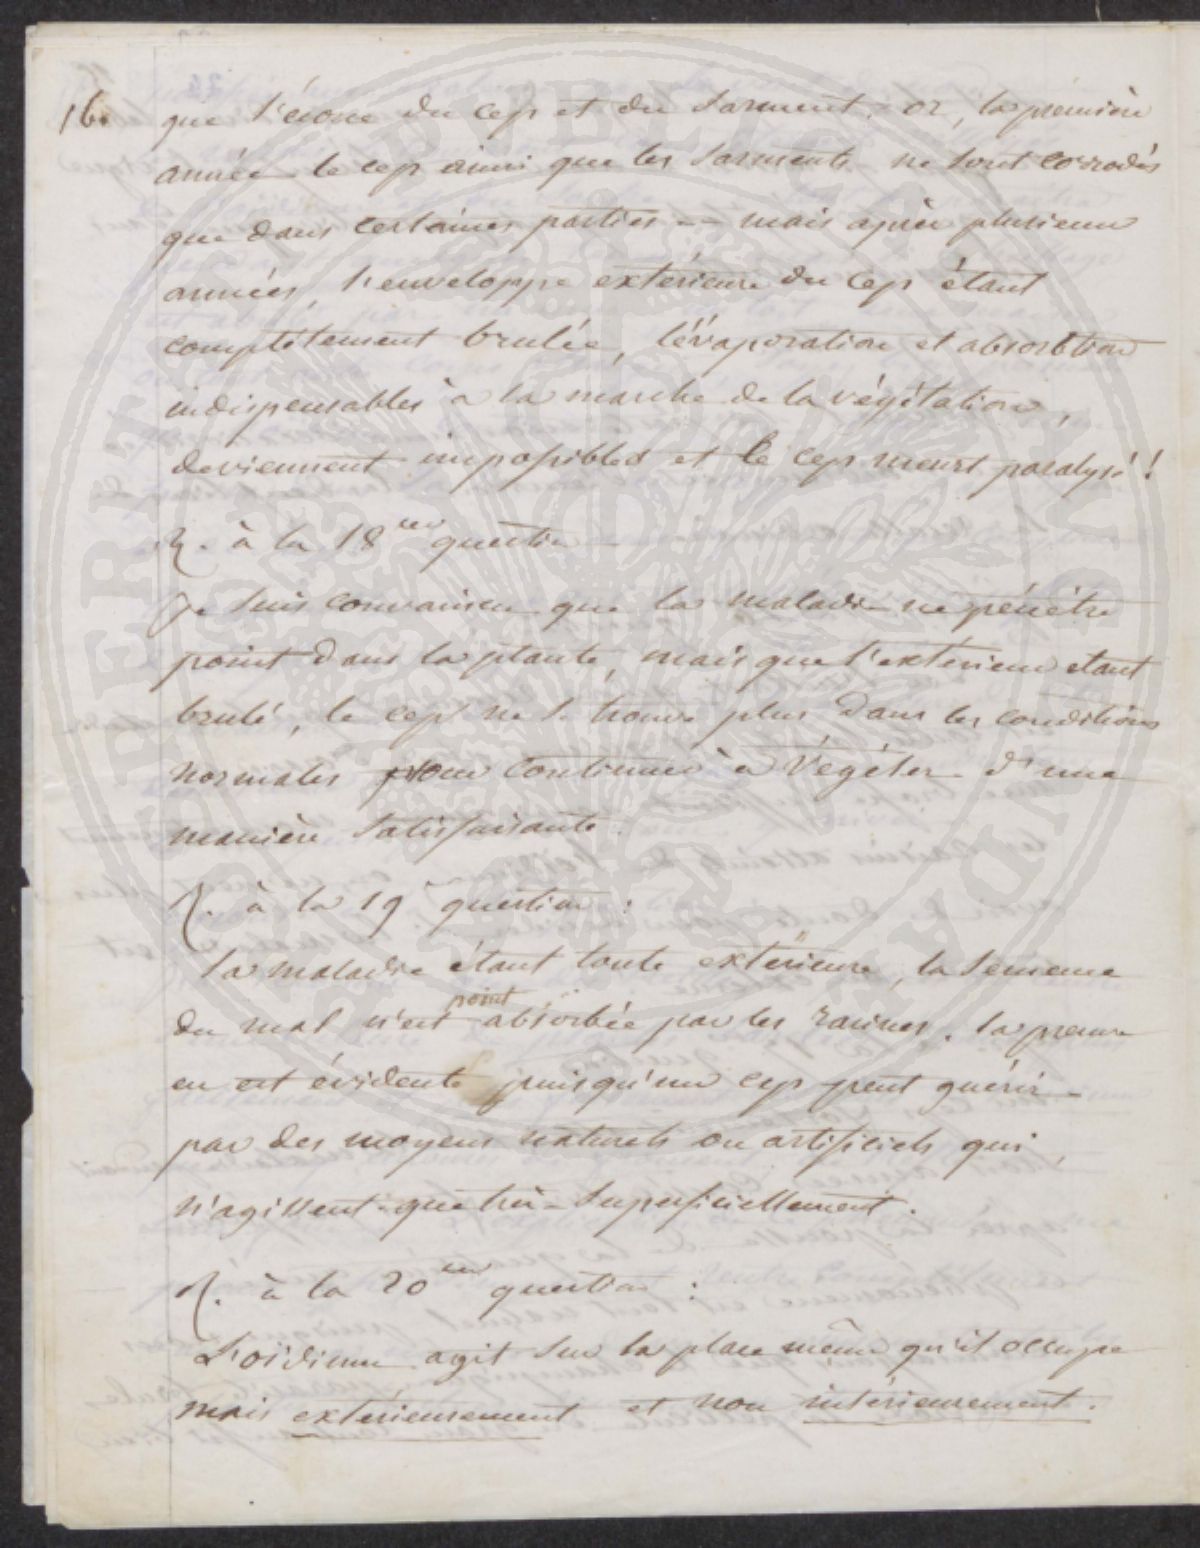 16. que l'écorce du cep et du sarment. or, la première
année le cep ainsi que les sarments ne sont corrodés
que dans certaines parties -- mais après plusieurs
années, l'enveloppe extérieure du cep étant
complètement brulée, l'évaporation et absorbtion
indispensables à la marche de la végétation,
deviennent impossibles et le cep meurt paralysé!
R. à la 18eme question
Je suis convaincu que la maladie ne pénètre
point dans la plante, mais que l'extérieur etant
brulé, le cep ne se trouve plus dans les conditions
normales pour continuer à végéter d'une
manière satisfaisante.
R. à la 19e question :
La maladie étant toute extérieure, la semence
du mal n'est point absorbée par les racines. la preuve
en est évidente puisqu'un cep peut guérir
par des moyens naturels ou artificiels qui
n'agissent que très-superficiellement.
R. à la 20eme question :
L'oïdium agit sur la place même qu'il occupe
mais extérieurement et non intérieurement.
PERITATI PUBLICAE VINDICANDAE